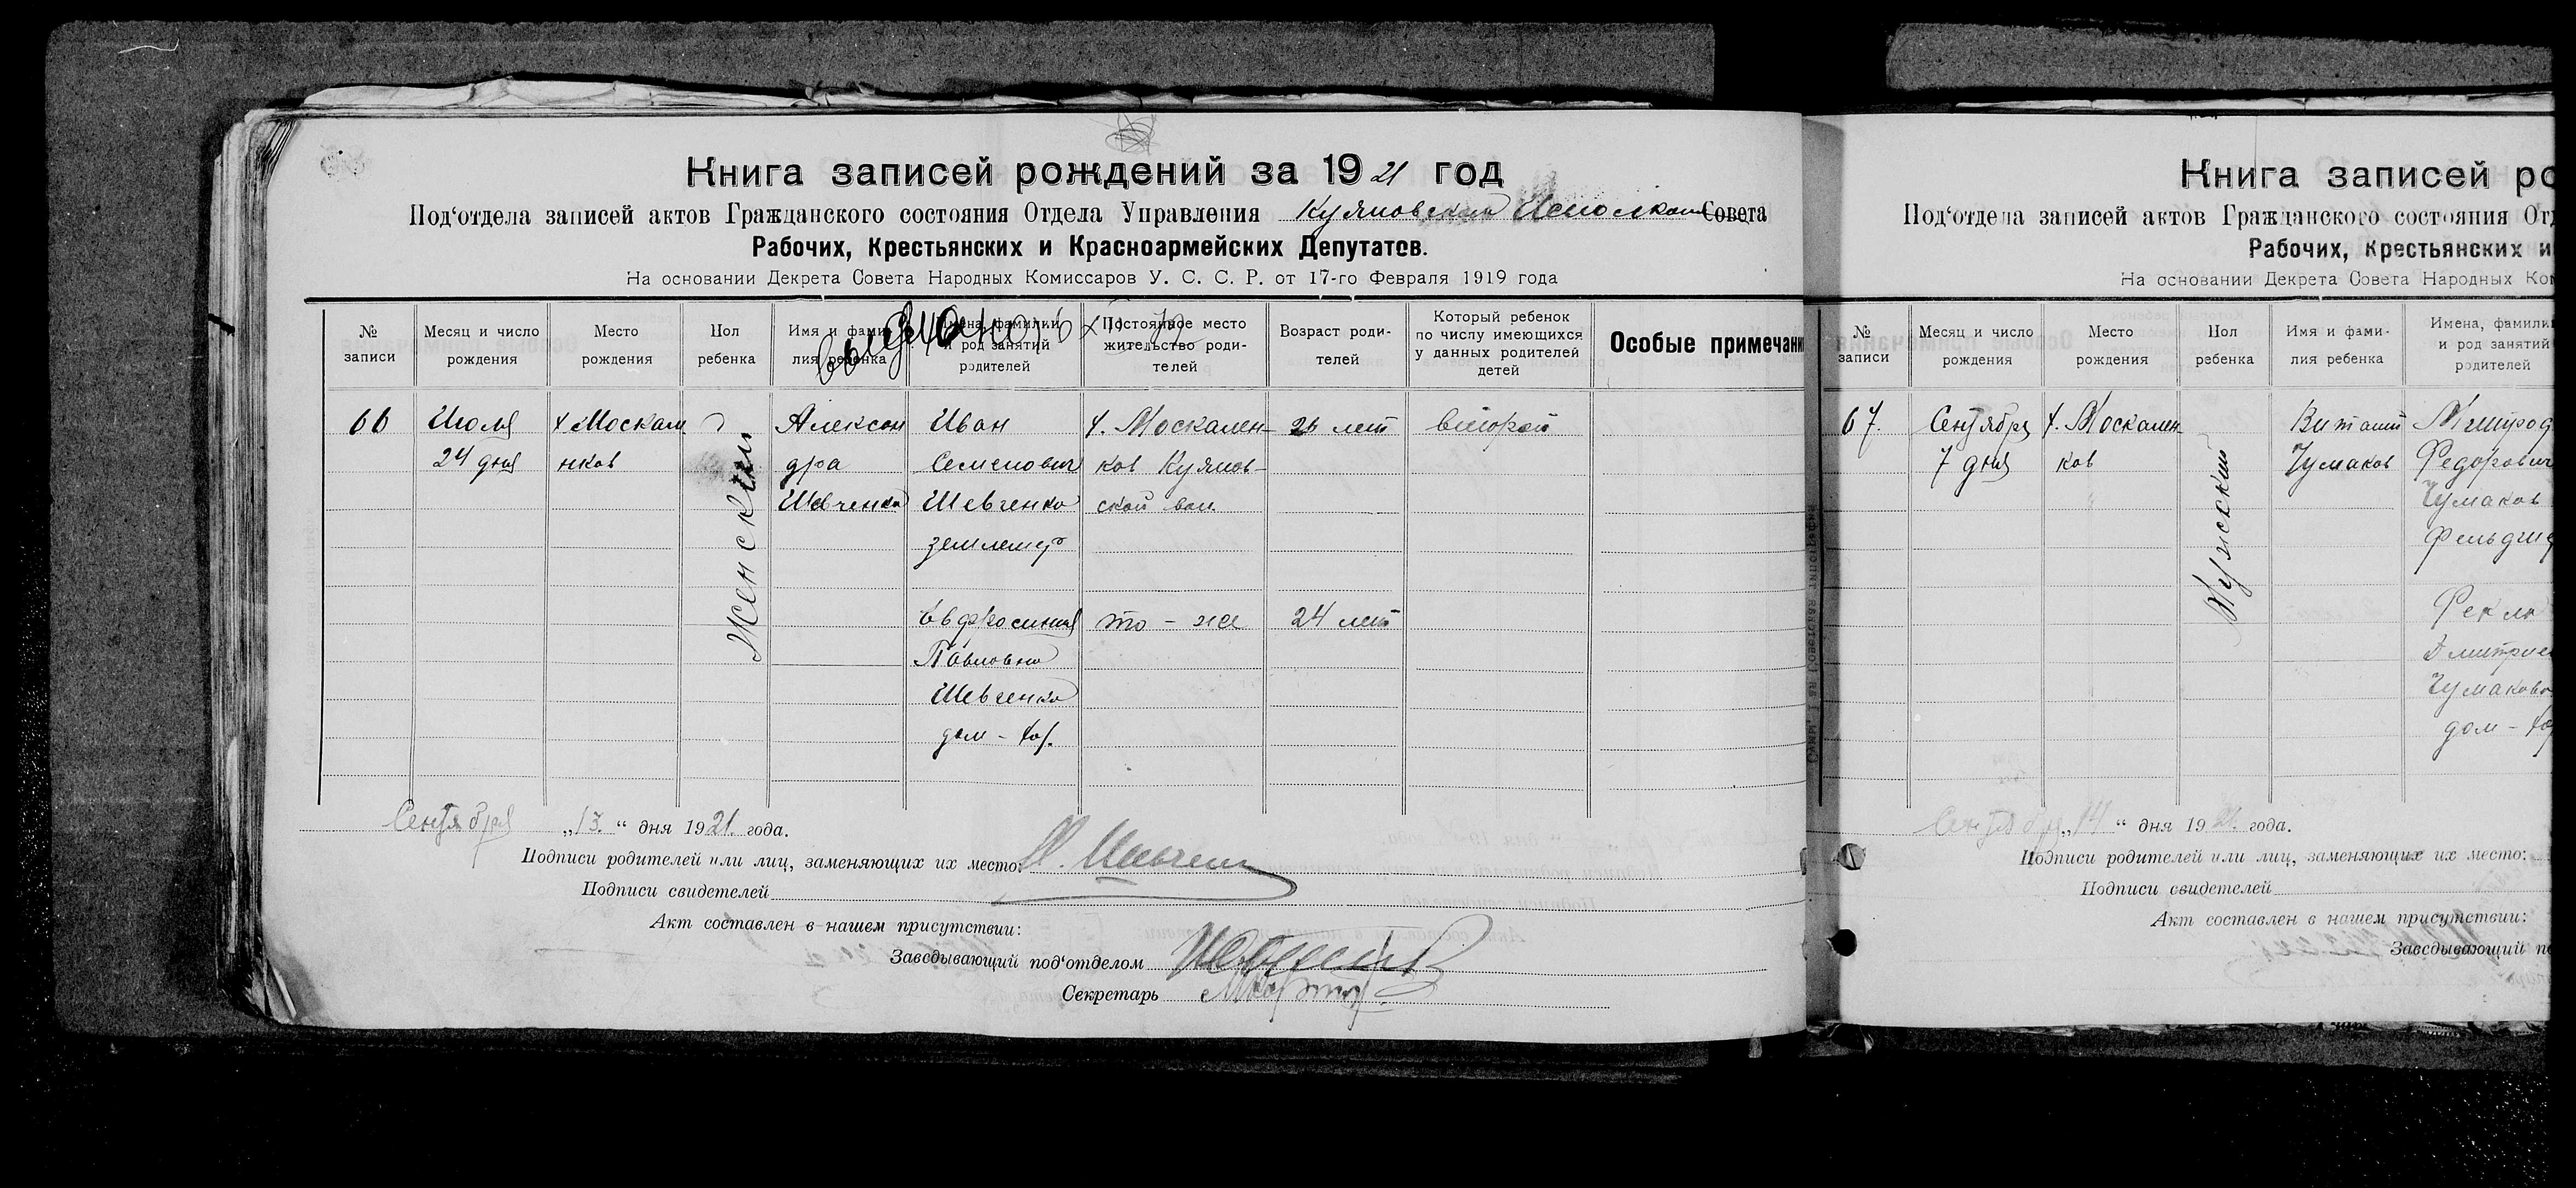 Книга записей рождений за 1921 год
Под‘отдела записей актов Гражданского состояния Отдела Управления Исполкома Совета
Рабочих, Крестьянских и Красноармейских Депутатов.
На основании Декрета Совета Народных Комиссаров У. С. С. Р. от 17-го Февраля 1919 года
№ записи
Месяц и число рождения
Место рождения
Пол ребенка
Имя и фамилия ребенка
Имена, фамилии и род занятий родителей
Постоянное место жительство родителей
Возраст родителей
Который ребенок по числу имеющихся у данных родителей детей
Особые примечани
66
Июля
24 дня
х Москален
нков
Женский
Алексан
дра
Шевченко
Иван
Семенович
Шевченко
землемер
Евфросиния
Павловна
Шевченко
дом - хоз.
х. Москален-
ков Куямов-
ской вол.
то - же
26 лет
24 лет
второй
Сентября „13.“ дня 1921. года.
Подписи родителей или лиц, заменяющих их место:
Подписи свидетелей
Акт составлен в нашем присутствии:
Заведывающий под‘отделом
Секретарь
Книга записей ро
Под‘отдела записей актов Гражданского состояния Отд
Рабочих, Крестьянских и
На основании Декрета Совета Народных Ком
№ записи
Месяц и число рождения
Место рождения
Пол ребенка
Имя и фамилия ребенка
Имена, фамилии и род занятий родителей
67.
Сентября
7 дня
х. Москален
ков
Мужской
Виталий
Чумаков
Митрод
Федорович
Чумаков
Фельдше
Фекла
Дмитрие
Чумакова
дом - хоз
Сентября „14“ дня 1921. года.
Подписи родителей или лиц, заменяющих их место:
Подписи свидетелей
Акт составлен в нашем присутствии:
Заведывающий по